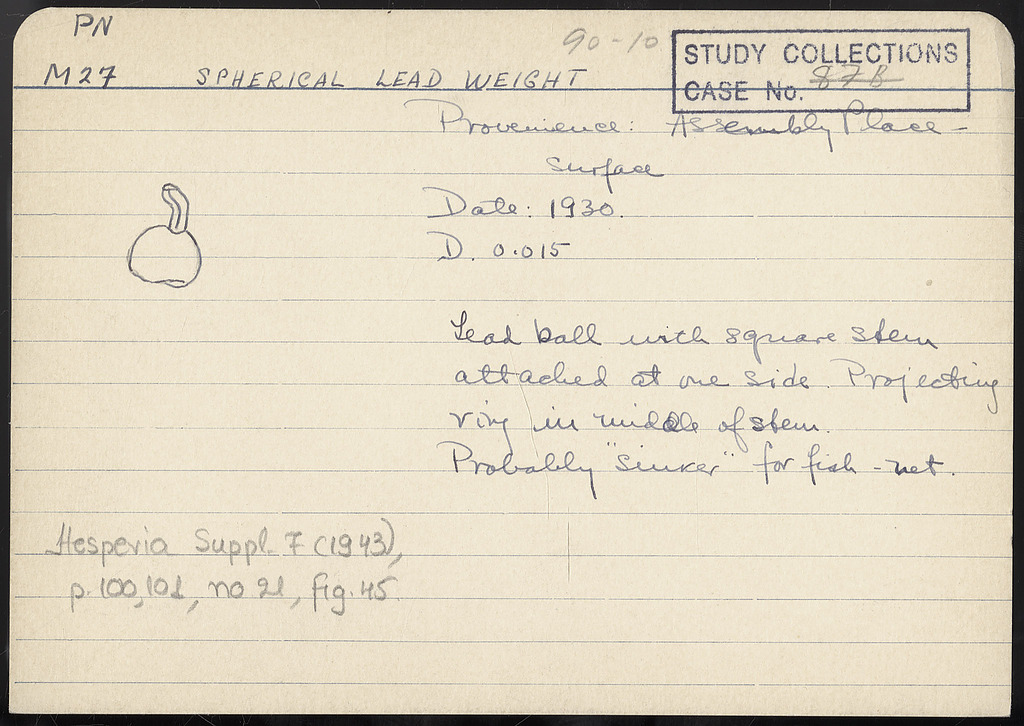 PN
90-10
STUDY COLLECTIONS
CASE No. 87B
M27 SPHERICAL LEAD WEIGHT
Provenience: Assembly Place -
surface
Date: 1930.
D. 0.015
Lead ball with square stem
attached at one side. Projecting
ring in middle of stem.
Probably "sinker" for fish-net.
Hesperia Suppl. 7 (1943),
p. 100,101, no 21, fig. 45.